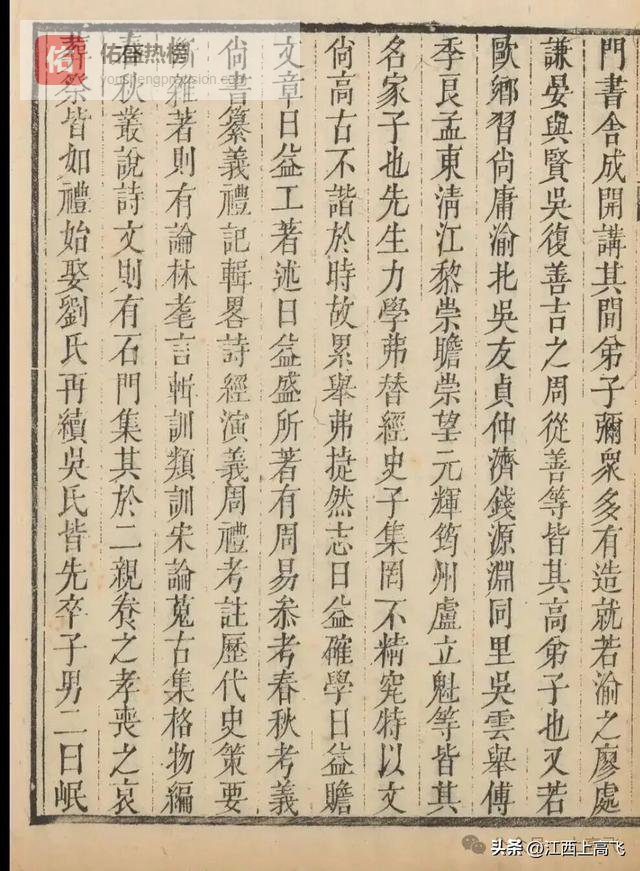 門書舍成開講其間弟子彌衆多有造就若渝之廖處
謙晏與賢吳復善吉之周從善等皆其高弟子也又若
歐鄉習尙庸渝北吳友貞仲濟錢源淵同里吳雲舉傅
季良孟東淸江黎崇瞻崇望元輝筠州盧立魁等皆其
名家子也先生力學弗替經史子集罔不精究特以文
尙高古不諧於時故累舉弗㨗然志日益確學日益贍
文章日益工著述日益盛所著有周易叅考春秋考義
尙書纂義禮記輯畧詩經演義周禮考註歷代史策要
斷雜著則有論林耄言輯訓類訓宋論蒐古集格物編
秋叢說詩文則有石門集其於二親養之孝喪之哀
葬祭皆如禮始娶劉氏再續吳氏皆先卒子男二曰岷
佑
佑盛热榜
youshengprecision.com
头条 @江西上高飞